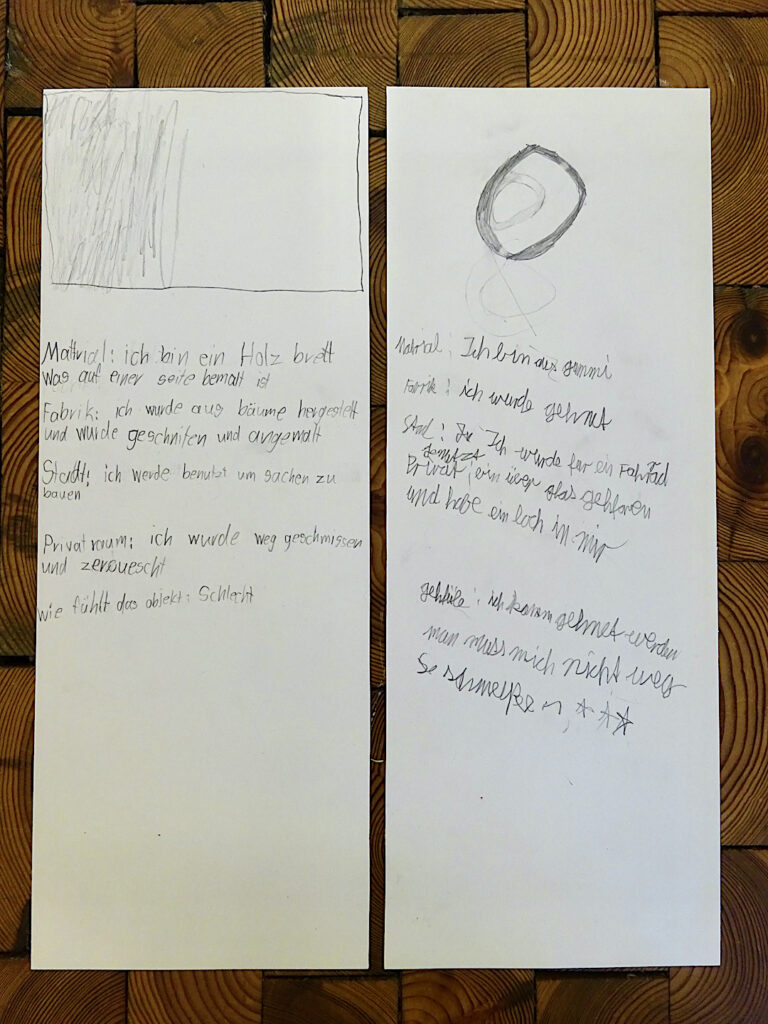 Matrial: ich bin ein Holz brett
was auf einer seite bemalt ist
Fabrik: ich wurde aus bäume hergestelt
und wurde geschniten und angemalt
Stadt: ich werde benutzt um sachen zu
bauen
Privat raum: ich wurde weg geschmissen
und zerquescht
wie fühlt das objekt: Schlecht
Matrial: Ich bin aus gummi
Fabrik: ich wurde gehnt
Ich wurde für ein Fahrrad
benutzt
Privat: bin über glas gefaren
und habe ein loch in mir
gefühle: ich kann gehnet werden
man muss mich nicht weg
schmeißen